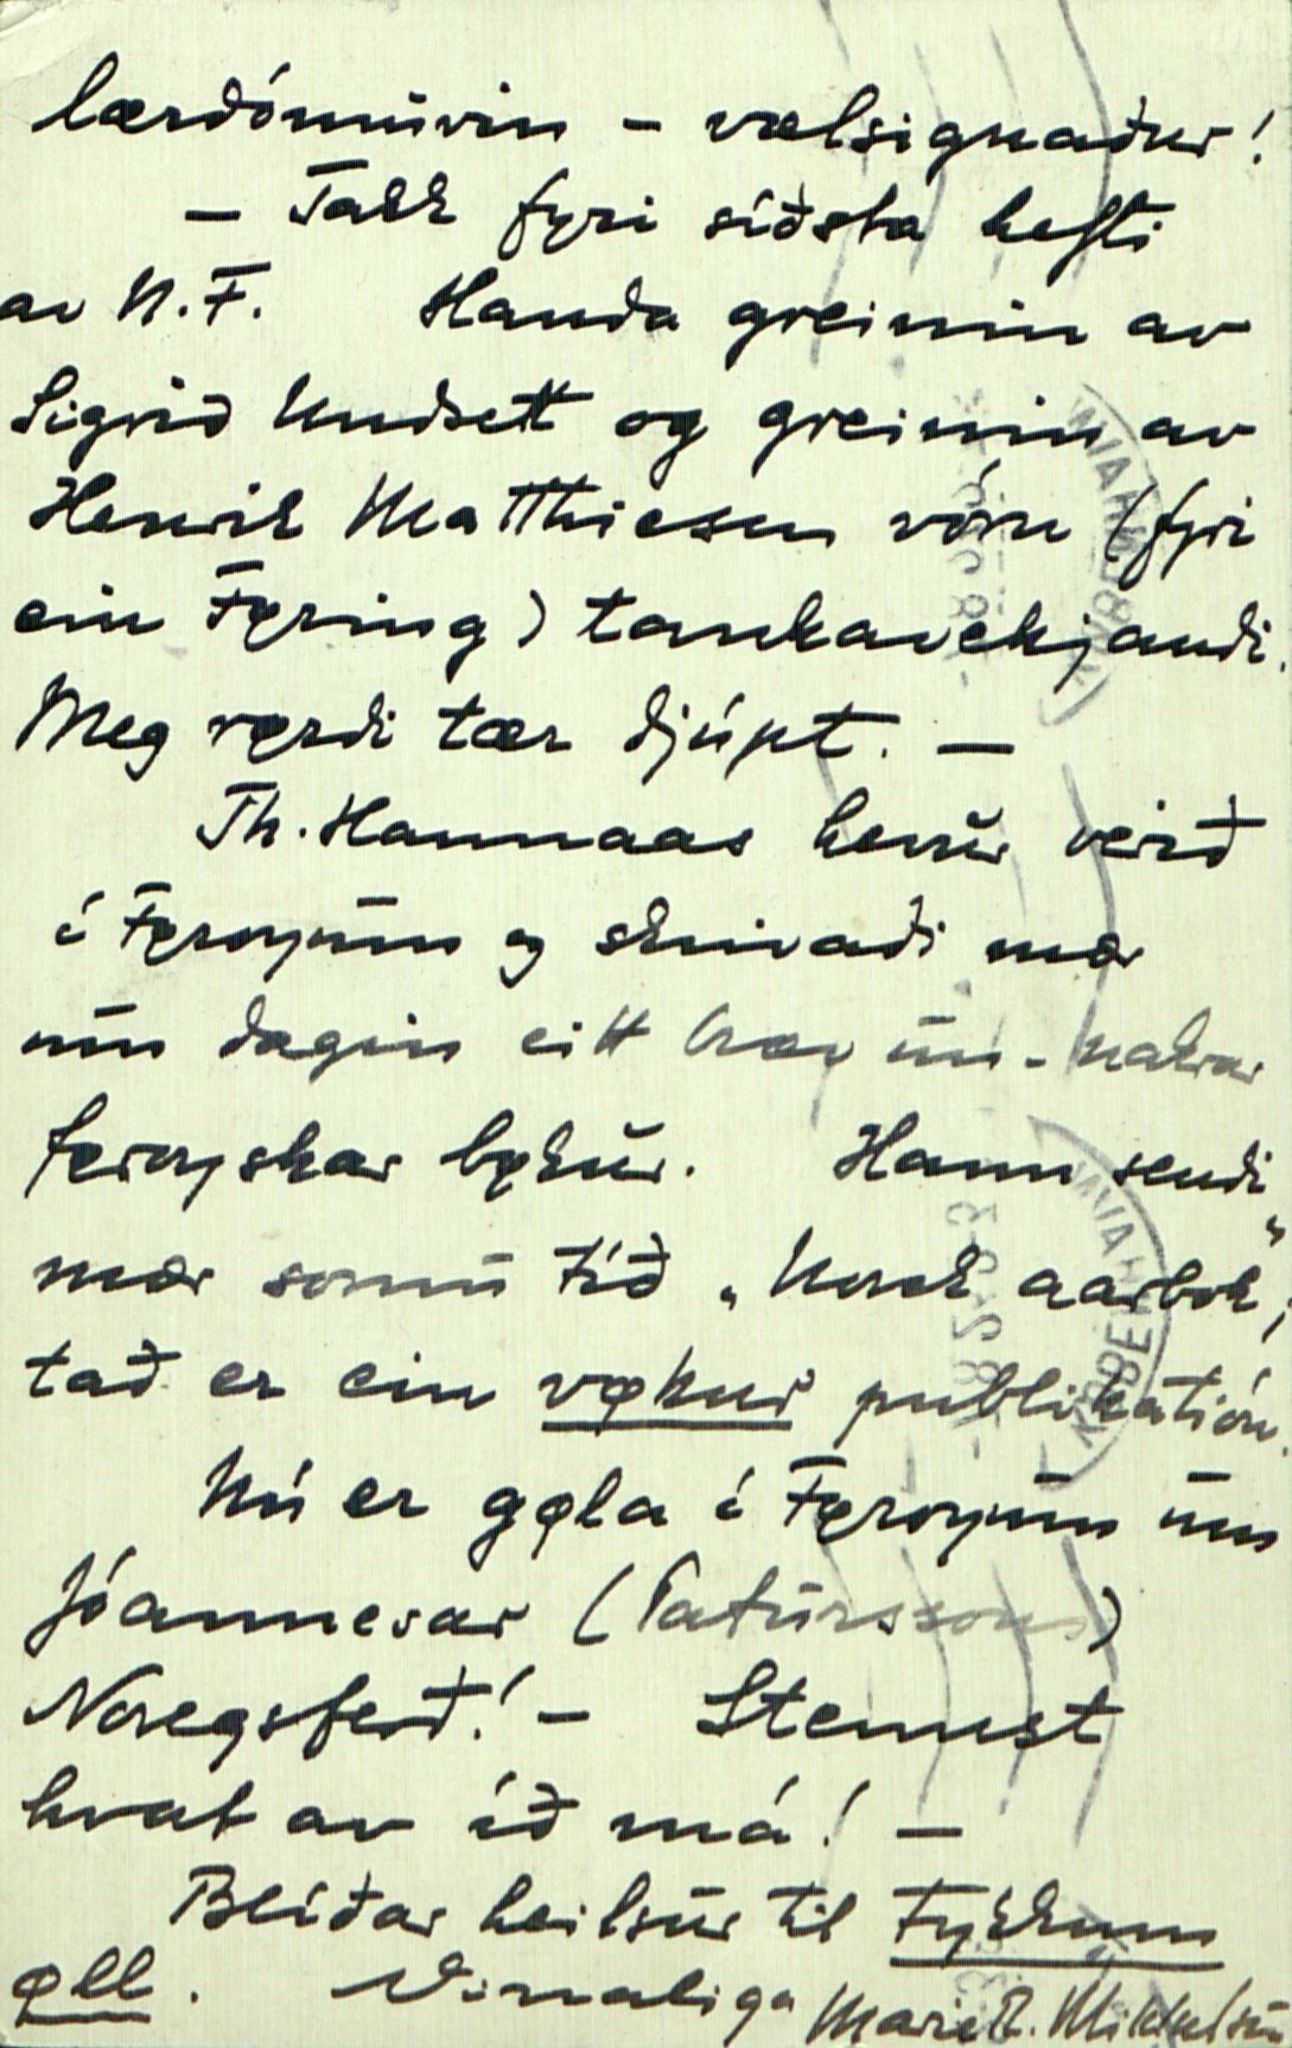 lærdómurin – vælsignaður!
– Takk fyri síðsta hefti
av N.F. Handa greinin av
Sigrid Undsett og greinin av
Henrik Matthiesen vóru (fyri
ein Føring) tankavekjandi.
Meg rørdi tær djúpt. –
Th. Hannaas hevur verið
í Føroyum og skrivaði mær
um dagin eitt bræv um nakrar
føroyskar bøkur. Hann sendi
mær somu tíð „Norsk aarbok";
tað er ein vøkur publikatión.
Nú er gøla í Føroyum um
Jóannesar (Paturssons)
Noregsferð! – Stemst
hvat av íð má! –
Blíðar heilsur til Tykkum
øll. Vinaliga Marie E. Mikkelsen